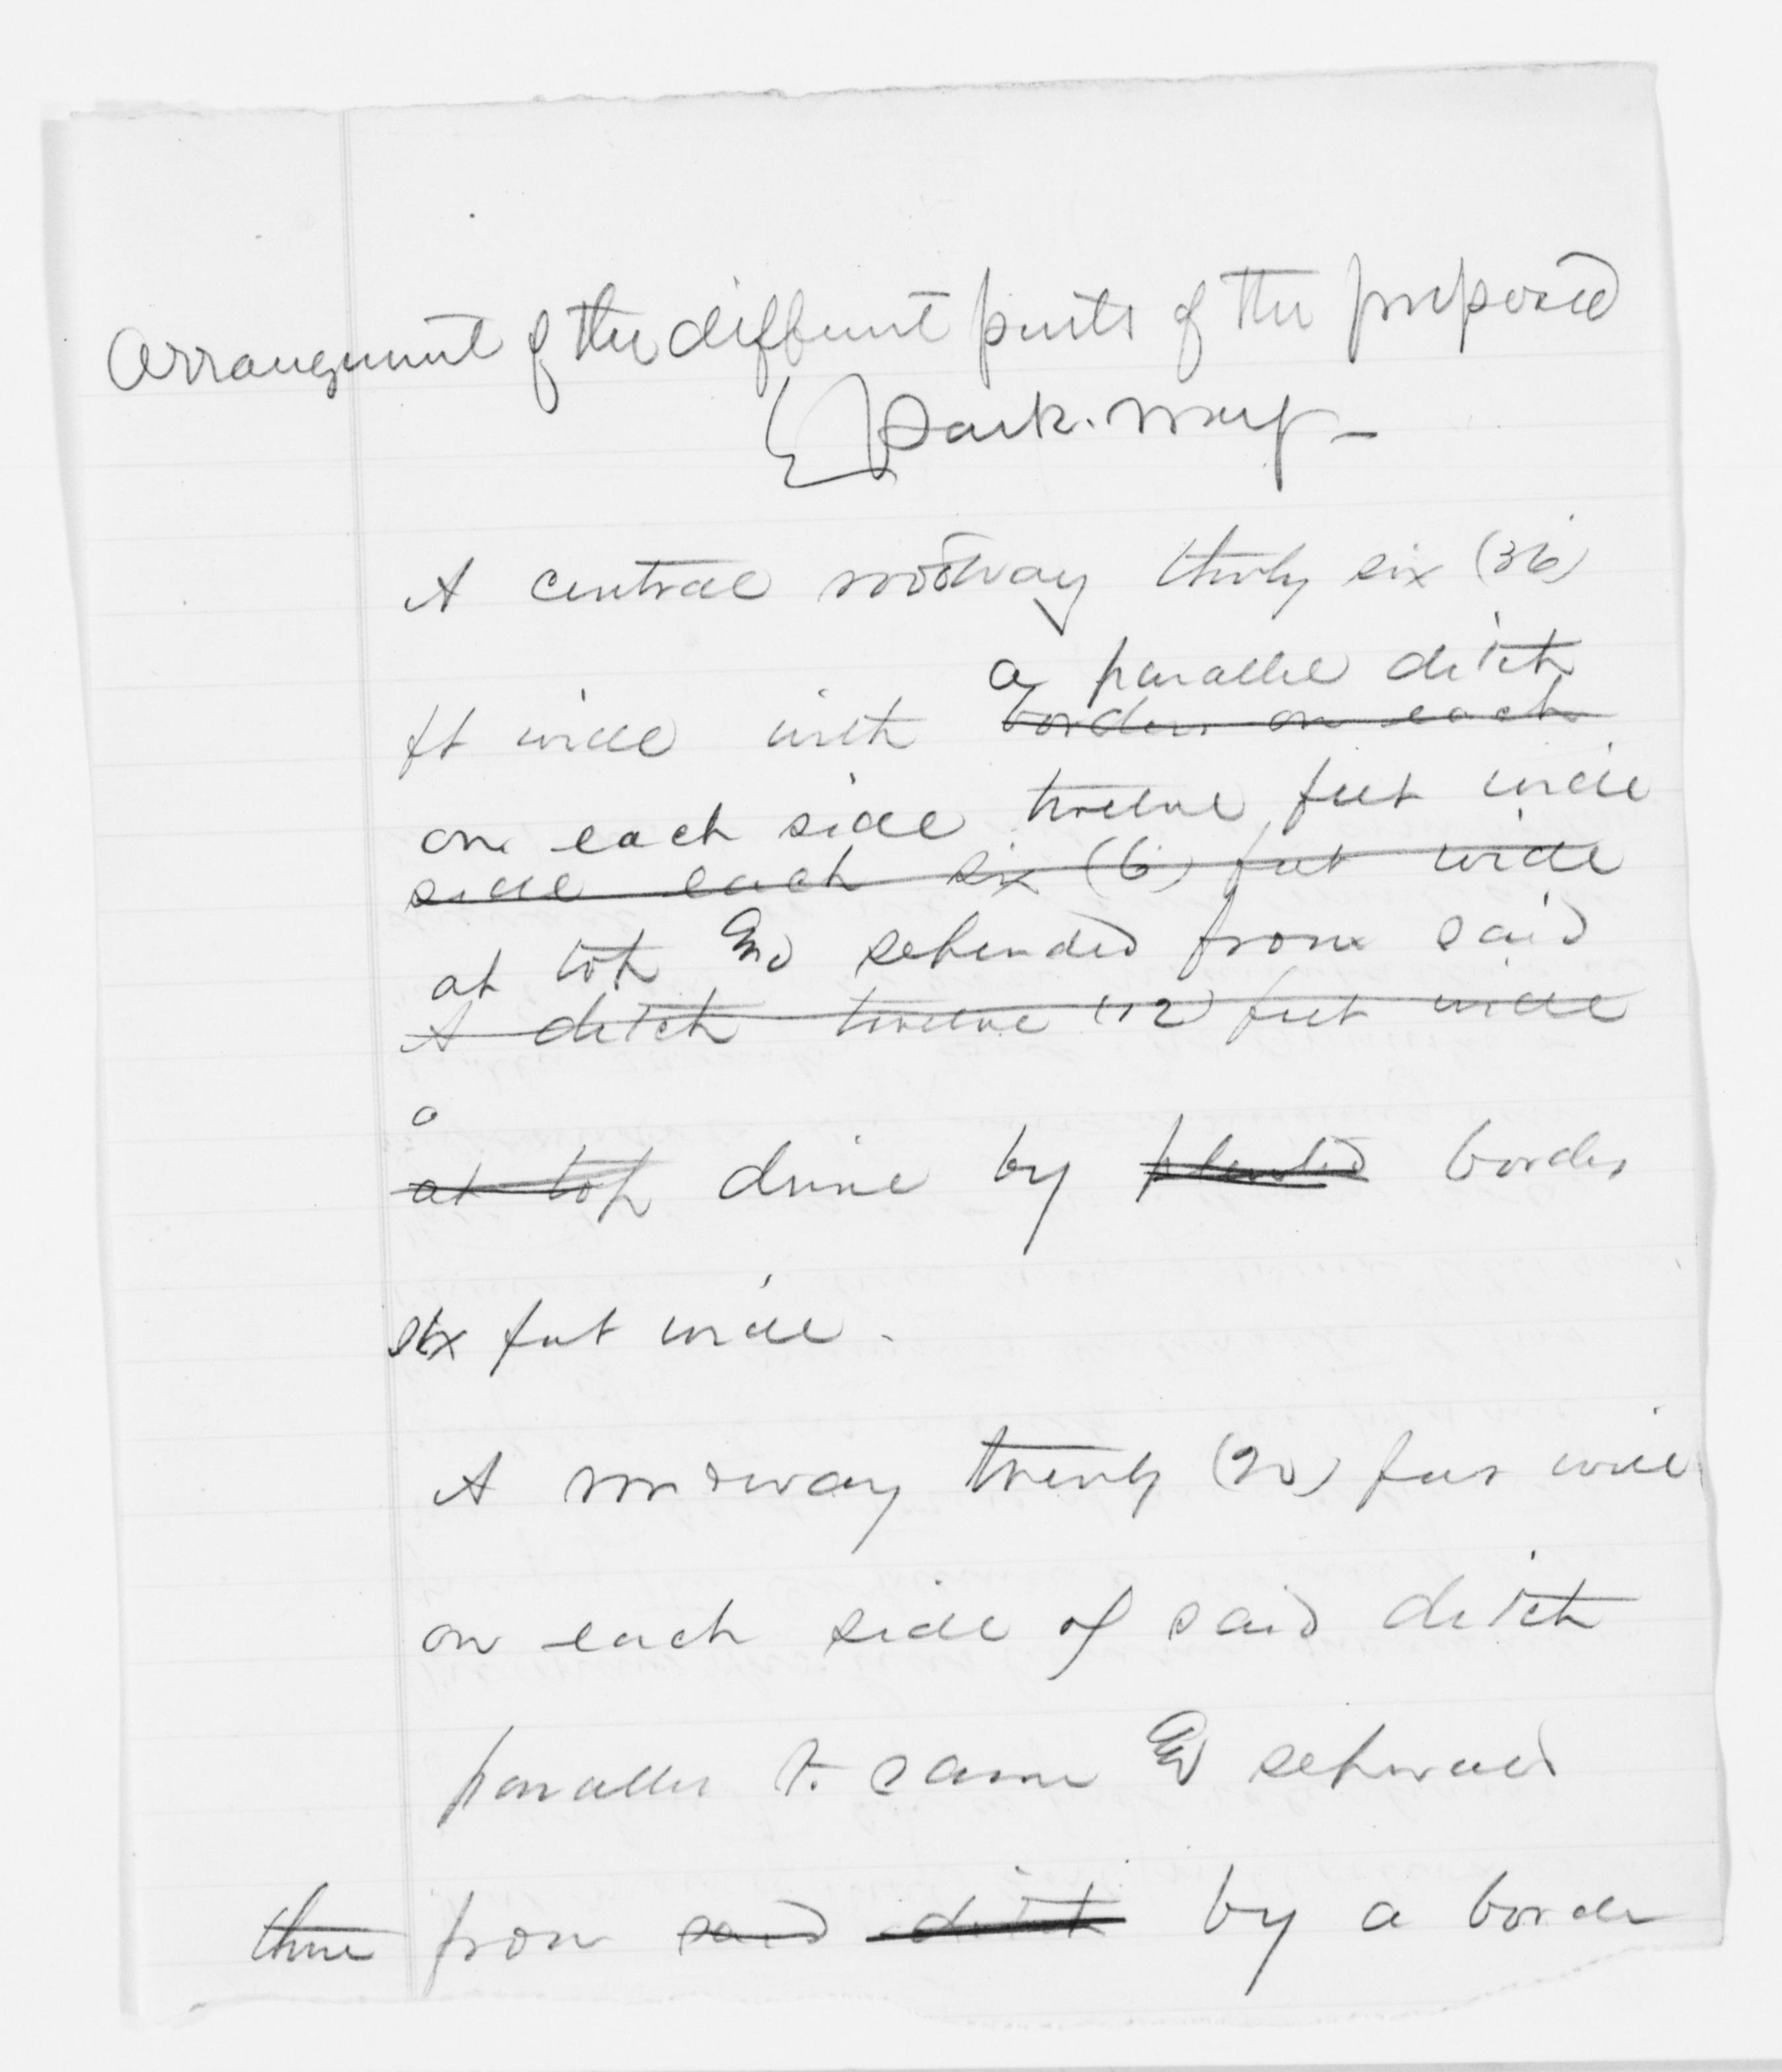 Arrangement of the different parts of the proposed
Park-way -
A central roadway thirty six (36)
a parallel ditch
ft wide with borders on each
on each side twelve feet wide
side each six (6) feet wide
at top and seperated from said
A ditch twelve (12) feet wide
a
at top drive by planted border
six feet wide.
A roadway twenty (20) feet wide
on each side of said ditch
parallel to same and seperated
there from said ditch by a border